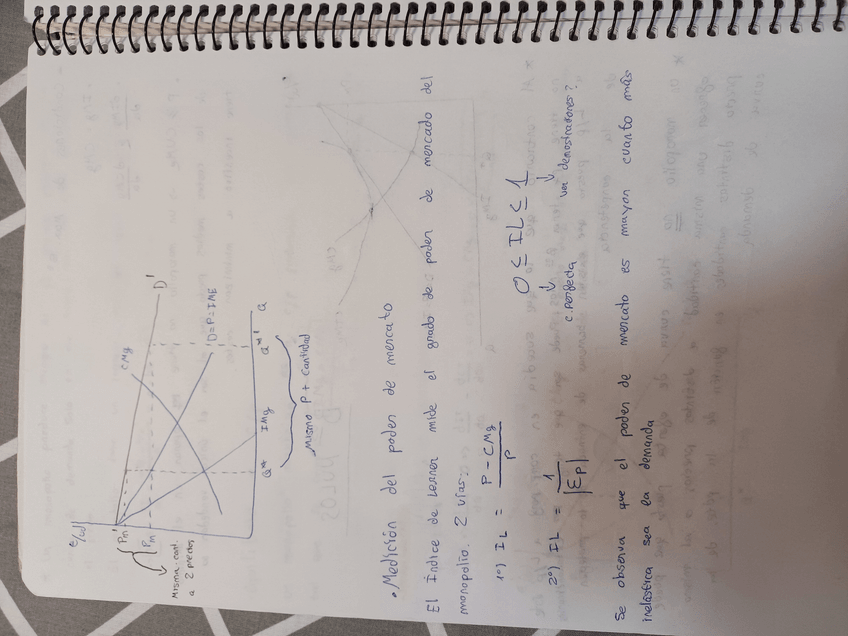 €/ud
Pm'
Pm
Misma cant.
a 2 precios
CMg
D'
D=P=IME
Q
Q*
IMg
Q*'
Mismo P ≠ cantidad
• Medición del poder de mercado
El Índice de Lerner mide el grado de poder de mercado del
monopolio. 2 vías:
1º) IL = P - CMg / P
2º) IL = 1 / |Ep|
0 ≤ IL ≤ 1
c. perfecta
demostradores?
Se observa que el poder de mercado es mayor cuanto más
inelástica sea la demanda